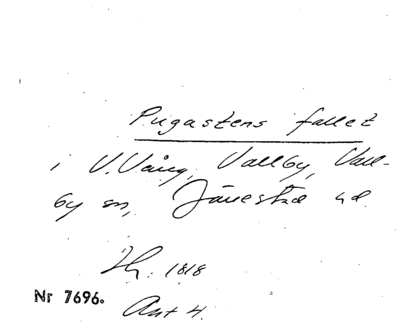 Pugastens fallet
i V.Vång, Vallby, Vall-
by sn, Järrestad hd.
Jh. 1818
Nr 7696.
Ant 4.